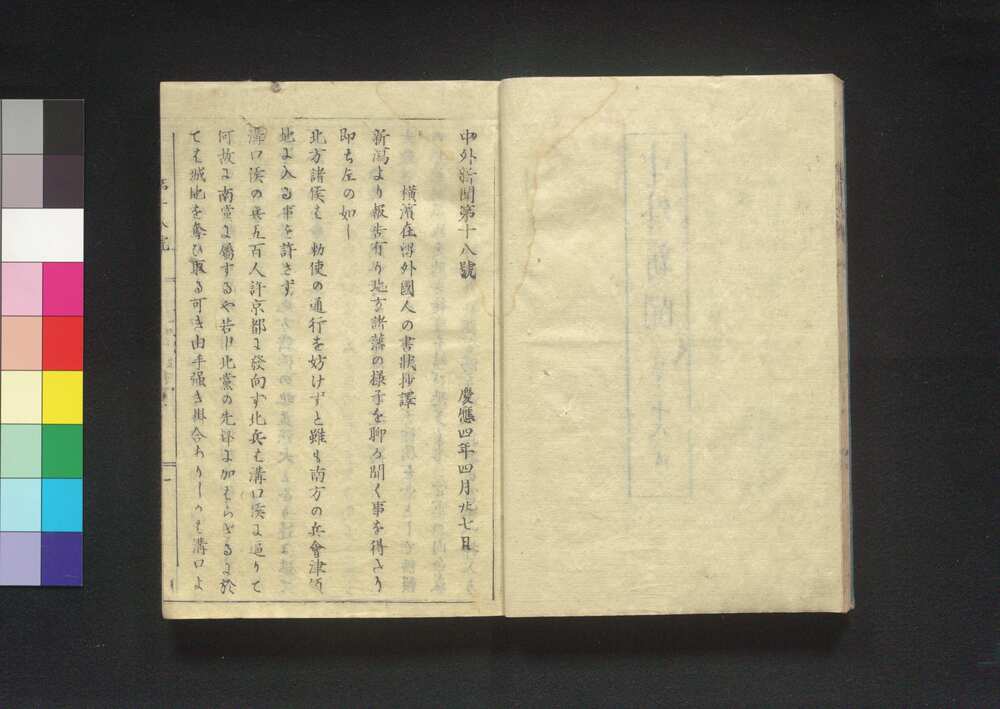 中外新聞第十八號　慶應四年四月廿七日
横濱在留外國人の書狀抄譯
新潟より報告有り此地方諸藩の様子を聊か聞く事を得さり
即ち左の如し
北方諸侯も勅使の通行を妨けずと雖も南方の兵會津領
地よ入る事を許さず
溝口侯の兵五百人許京都よ發向す北兵も溝口侯よ逼りて
何故よ南黨よ屬するや若し北黨の先鋒よ加もらざるよ於
ても城地を奪ひ取る可き由手强き掛合ありしかも溝口よ
第十八號